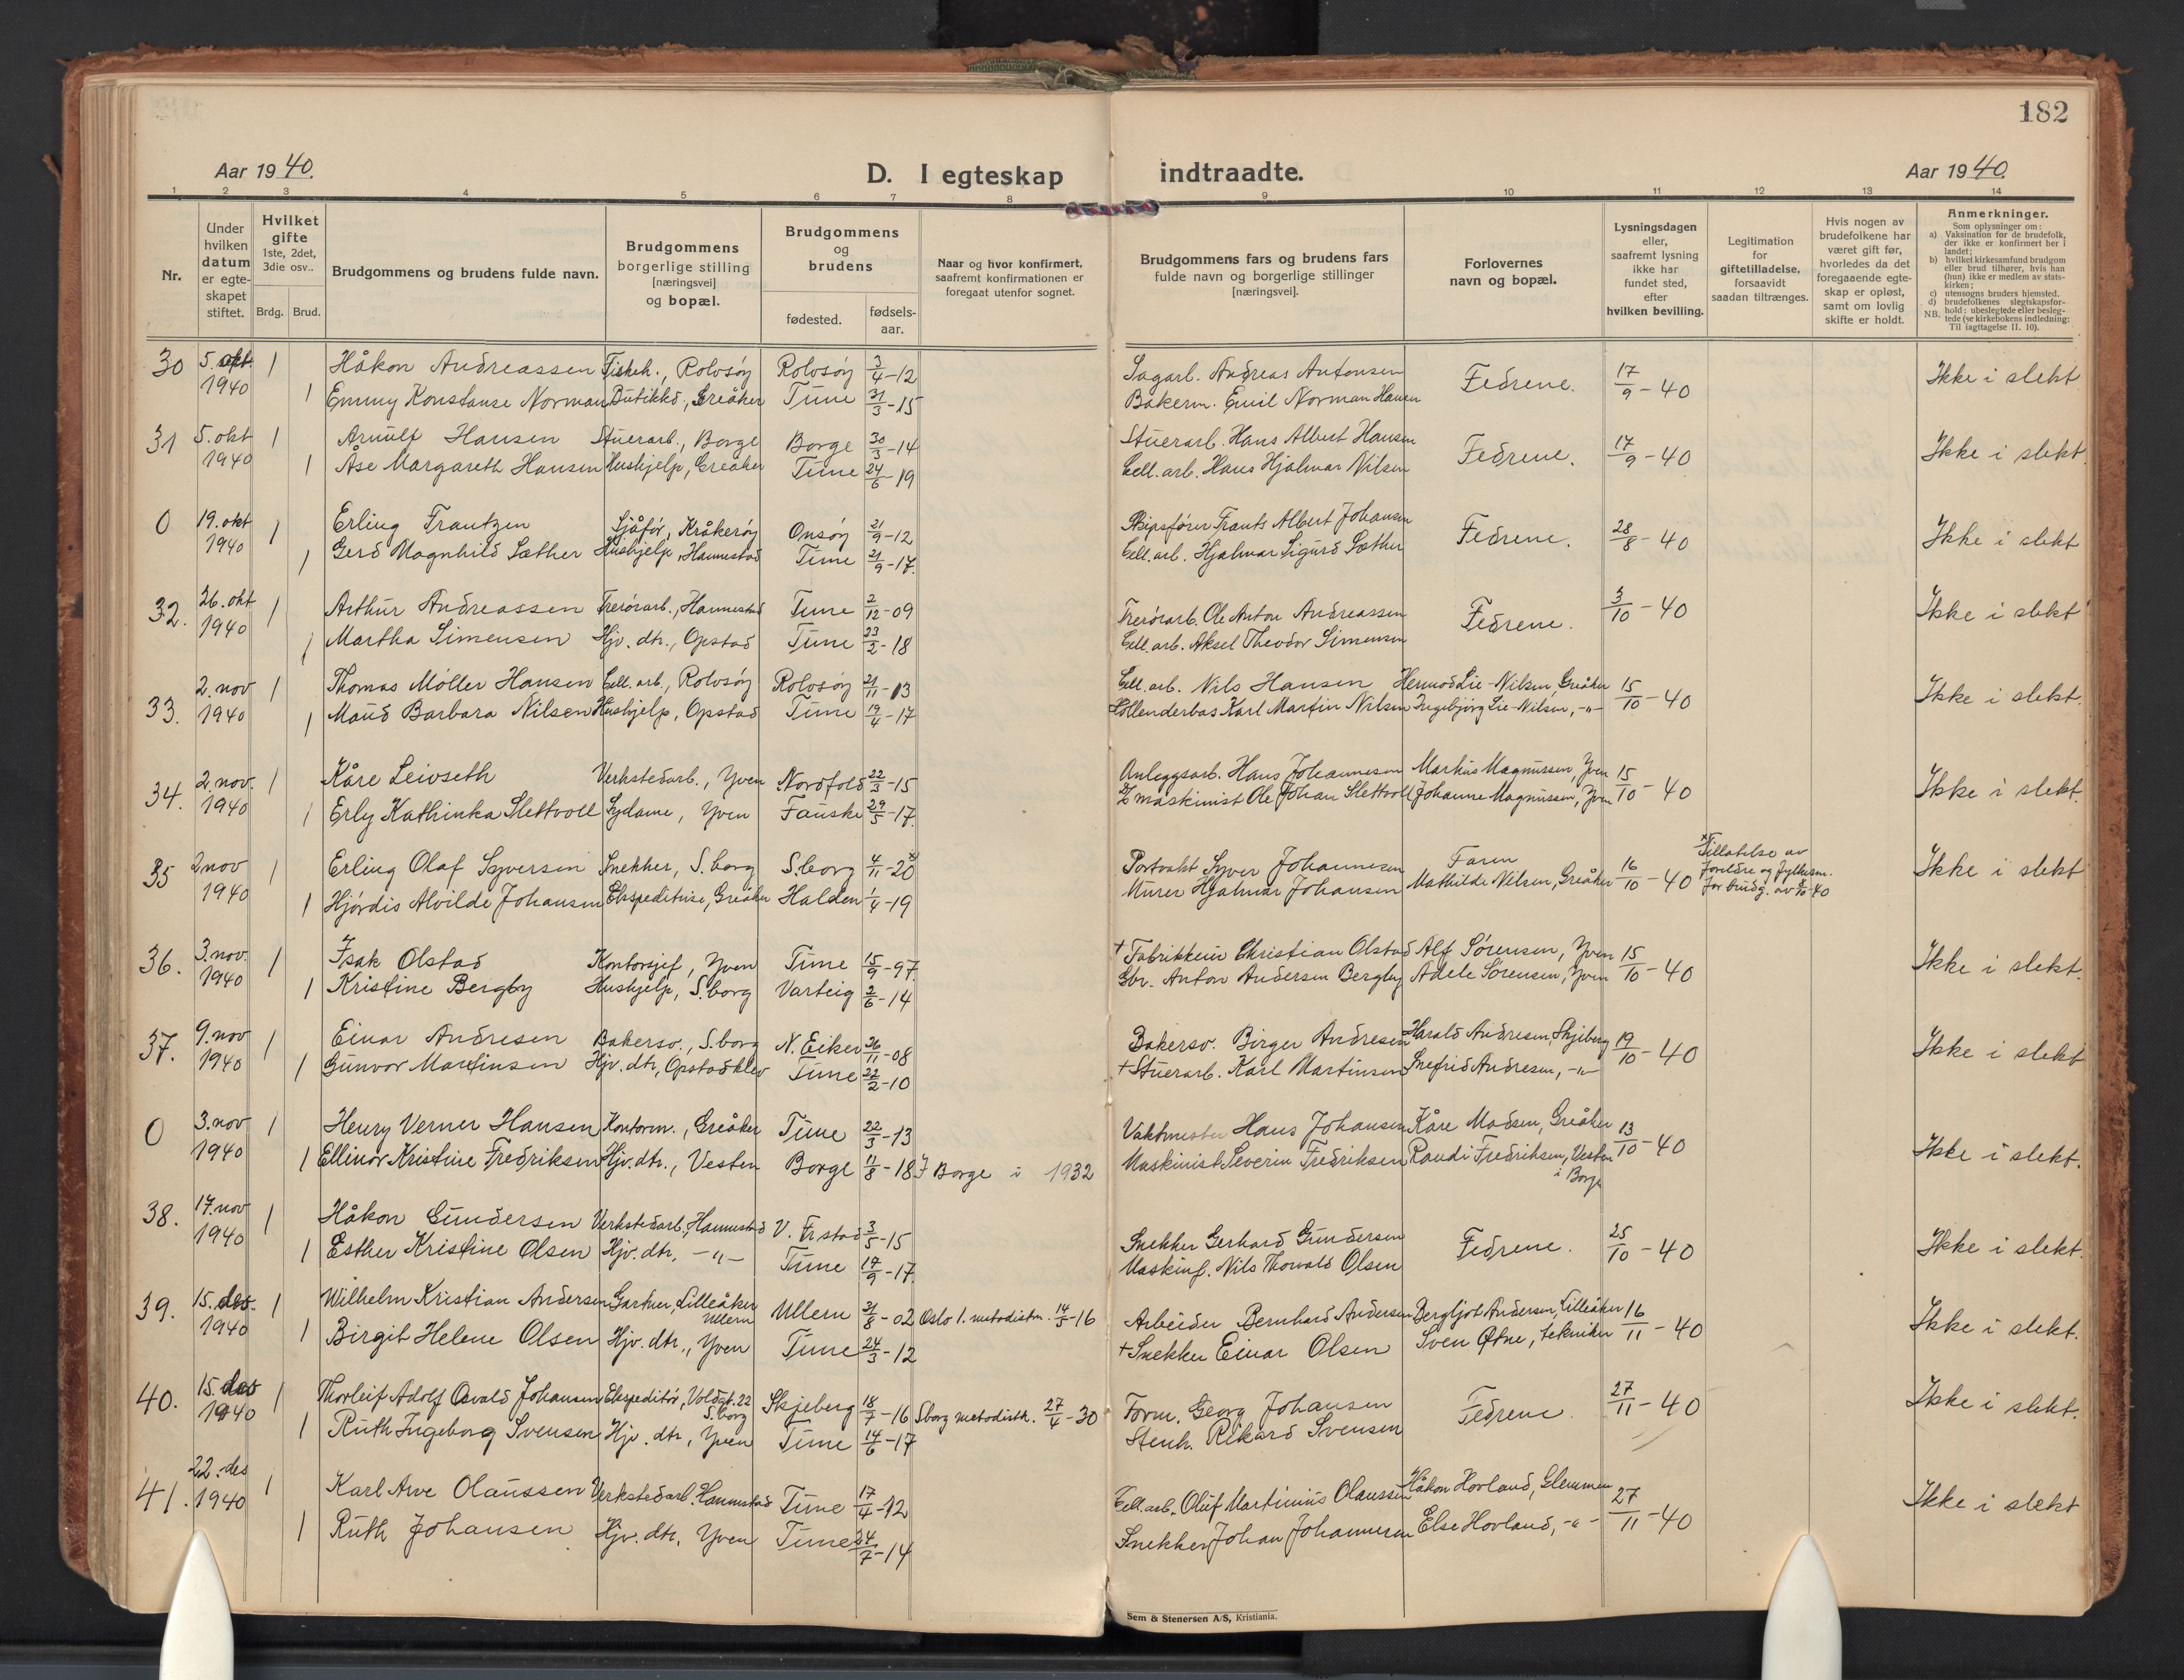 182
Aar 1940.
D. I egteskap indtraadte.
Aar 1940.
1 2 3 4 5 6 7 8 9 10 11 12 13 14
Nr.
Under hvilken datum er egte-skapet stiftet.
Hvilket gifte 1ste, 2det, 3die osv..
Brdg. Brud.
Brudgommens og brudens fulde navn.
Brudgommens borgerlige stilling [næringsvei] og bopæl.
Brudgommens og brudens
fødested.
fødsels-aar.
Naar og hvor konfirmert, saafremt konfirmationen er foregaat utenfor sognet.
Brudgommens fars og brudens fars fulde navn og borgerlige stillinger [næringsvei].
Forlovernes navn og bopæl.
Lysningsdagen eller, saafremt lysning ikke har fundet sted, efter hvilken bevilling.
Legitimation for giftetilladelse, forsaavidt saadan tiltrænges.
Hvis nogen av brudefolkene har været gift før, hvorledes da det foregaaende egte-skap er opløst, samt om lovlig skifte er holdt.
Anmerkninger.
Som oplysninger om:
a) Vaksination for de brudefolk, der ikke er konfirmert her i landet;
b) hvilket kirkesamfund brudgom eller brud tilhører, hvis han (hun) ikke er medlem av stats-kirken;
c) utensogns bruders hjemsted.
d) brudefolkenes slegtskapsfor-hold: ubeslegtede eller besleg-tede (se kirkebokens indledning: Til iagttagelse II. 10).
NB.
30 5. okt. 1940 1 Håkon Andreassen Fiskeh., Rolvsøy Rolvsøy 3/4-12 Sagarb. Andreas Antonsen Fedrene. 17/9-40 Ikke i slekt
1 Emmy Konstanse Norman Butikkd, Greåker Tune 31/3-15 Bakerm. Emil Norman Hansen
31 5. okt 1940 1 Arnulf Hansen Stuerarb., Borge Borge 30/3-14 Stuerarb. Hans Albert Hansen Fedrene. 17/9-40 Ikke i slekt.
1 Åse Margareth Hansen Hushjelp, Greåker Tune 24/6-19 Cell. arb. Hans Hjalmar Nilsen
0 19. okt 1940 1 Erling Frantzen Sjåfør, Kråkerøy Onsøy 21/9-12 Skipsfører Frants Albert Johansen Fedrene. 28/8-40 Ikke i slekt
1 Gerd Magnhild Sæther Hushjelp, Hannestad Tune 21/9-17. Cell. arb. Hjalmar Sigurd Sæther
32. 26. okt 1940 1 Arthur Andreassen Trerørarb., Hannestad Tune 2/12-09 Trerørarb. Ole Anton Andreassen Fedrene. 3/10-40 Ikke i slekt
1 Martha Simensen Hjv. dtr., Opstad Tune 23/2-18 Cell. arb. Aksel Theodor Simensen
33. 2. nov 1940 1 Thomas Møller Hansen Cell. arb., Rolvsøy Rolvsøy 21/11-13 Cell. arb. Nils Hansen Hermod Lie-Nilsen, Greåker 15/10-40 Ikke i slekt.
1 Maud Barbara Nilsen Hushjelp, Opstad Tune 19/4-17 Hollenderbas Karl Martin Nilsen Ingebjørg Lie-Nilsen, -"-
34. 2. nov. 1940 1 Kåre Leivseth Verkstedarb., Yven Nordfold 22/3-15 Anleggsarb. Hans Johannesen Markus Magnussen, Yven 15/10-40 Ikke i slekt.
1 Erly Kathinka Slettvoll Sydame, Yven Fauske 29/5-17. maskinist Ole Johan Slettvoll Johanne Magnussen, Yven
35 2 nov 1940 1 Erling Olaf Syversen Snekker, S.borg S.borg 4/11-20 x Portvakt Syver Johannesen Faren 16/10-40 x Tillatelse av foreldre og fylkesm. for brudg. av 8/10-40 Ikke i slekt
1 Hjørdis Alvilde Johansen Ekspeditrise, Greåker Halden 1/4-19 Murer Hjalmar Johansen Mathilde Nilsen, Greåker
36. 3. nov. 1940 1 Isak Olstad Kontorsjef, Yven Tune 15/9-97. + Fabrikkeier Christian Olstad Alf Sørensen, Yven 15/10-40 Ikke i slekt.
1 Kristine Bergby Hushjelp, S.borg Varteig 2/6-14 Gbr. Anton Andersen Bergby Adele Sørensen, Yven
37. 9. nov 1940 1 Einar Andresen Bakersv., S.borg N. Eiker 26/11-08 Bakersv. Birger Andresen Harald Andresen, Skjeberg 19/10-40 Ikke i slekt
1 Gunvor Martinsen Hjv. dtr, Opstadklev Tune 22/2-10 + Stuerarb. Karl Martinsen Snefrid Andresen, -"-
0 3. nov 1940 1 Henry Verner Hansen Kontorm., Greåker Tune 22/3-13 Vaktmester Hans Johansen Kåre Madsen, Greåker 13/10-40 Ikke i slekt.
1 Ellinor Kristine Fredriksen Hjv. dtr., Vesten Borge 11/8-18 I Borge i 1932 Maskinist Severin Fredriksen Randi Fredriksen, Vesten i Borge
38. 17. nov 1940 1 Håkon Gundersen Verkstedarb., Hannestad V. Fr.stad 3/5-15 Snekker Gerhard Gundersen Fedrene. 25/10-40 Ikke i slekt.
1 Esther Kristine Olsen Hjv. dtr, -"- Tune 17/9-17. Maskinf. Nils Thorvald Olsen
39. 15. des. 1940 1 Wilhelm Kristian Andersen Gartner, Lilleåker Ullern Ullern 31/8-02 Oslo 1. metodistm. 14/5-16 Arbeider Bernhard Andersen Bergljot Andersen, Lilleåker 16/11-40 Ikke i slekt.
1 Birgit Helene Olsen Hjv. dtr., Yven Tune 24/3-12 + Snekker Einar Olsen Sven Østne, tekniker
40. 15. des 1940 1 Thorleif Adolf Osvald Johansen Ekspeditør, Voldgt. 22 S.borg Skjeberg 18/7-16 Sborg metodistk. 27/4-30 Form. Georg Johansen Fedrene. 27/11-40 Ikke i slekt.
1 Ruth Ingeborg Svensen Hjv. dtr, Yven Tune 14/6-17 Stenh. Rikard Svensen
41. 22. des 1940 1 Karl Arve Olaussen Verkstedarb. Hannestad Tune 17/4-12 Cell. arb. Oluf Martinius Olaussen Håkon Hovland, Glemmen 27/11-40 Ikke i slekt
1 Ruth Johansen Hjv. dtr, Yven Tune 24/7-14 Snekker Johan Johannesen Else Hovland, -"-
Sem & Stenersen A/S, Kristiania.